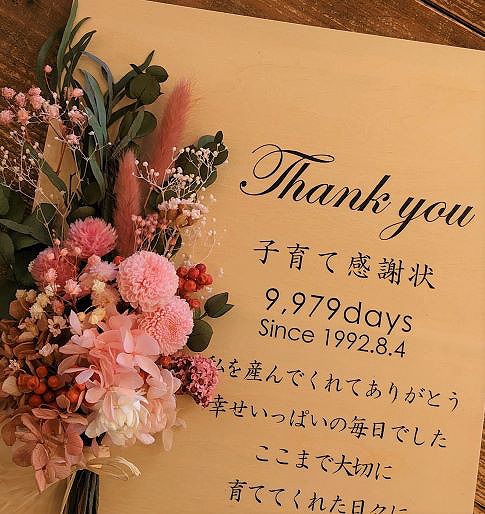 Thank you
子育て感謝状
9,979days
Since 1992.8.4
私を産んでくれてありがとう
幸せいっぱいの毎日でした
ここまで大切に
育ててくれた日々に